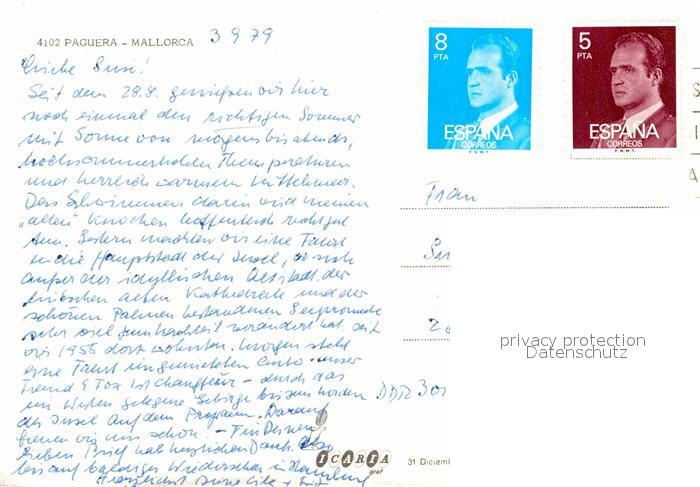 4102 PAGUERA - MALLORCA 3 9 79
Liebe Susi!
Seit dem 28.8. genießen wir hier
noch einmal den richtigen Sommer
mit Sonne von morgens bis abends,
hochsommerhohen Themperaturen
und herrlich warmem Mittelmeer.
Das Schwimmen darin wird meinen
„alten" Knochen hoffentlich recht gut
tun. Gestern machten wir eine Fahrt
in die Hauptstadt der Insel, wo sich
außer der idyllischen Altstadt, der
hübschen alten Kathedrale und der
schönen Palmen bestandenen Seepromenade
sehr viel zum Nachteil verändert hat, seit
wir 1956 dort wohnten. Morgen steht
eine Fahrt im gemieteten Auto - unser
Freund
ist Chauffeur - durch das
im Westen gelegene Gebirge bis zum Norden
der Insel auf dem Program. Darauf
freuen wir uns schon! - Für Deinen
lieben Brief hab herzlichen Dank. Also
bis auf baldiges Wiedersehen in Hamburg
Herzlichst Deine
8
PTA
ESPAÑA
CORREOS
F.N.M.T.
5
PTA
ESPAÑA
CORREOS
F.N.M.T.
S
I
A
Frau
Su
DDR 301
privacy protection
Datenschutz
ICARIA
graf
31 Diciemb